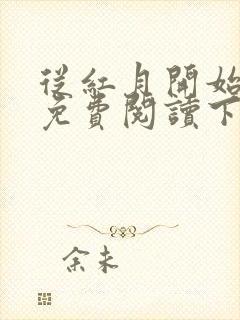 從紅月開始
免費閱讀下
余未